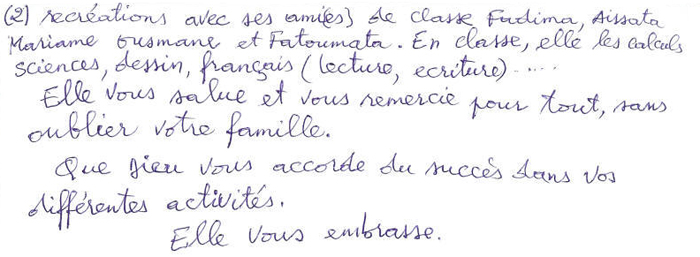 (2) recréations avec ses ami(es) de classe Fadima, Aissata
Mariame Ousmane et Fatoumata. En classe, elle les calculs
sciences, dessin, français (lecture, ecriture) .....
Elle vous salue et vous remercie pour tout, sans
oublier votre famille.
Que Dieu vous accorde du succès dans vos
différentes activités.
Elle vous embrasse.